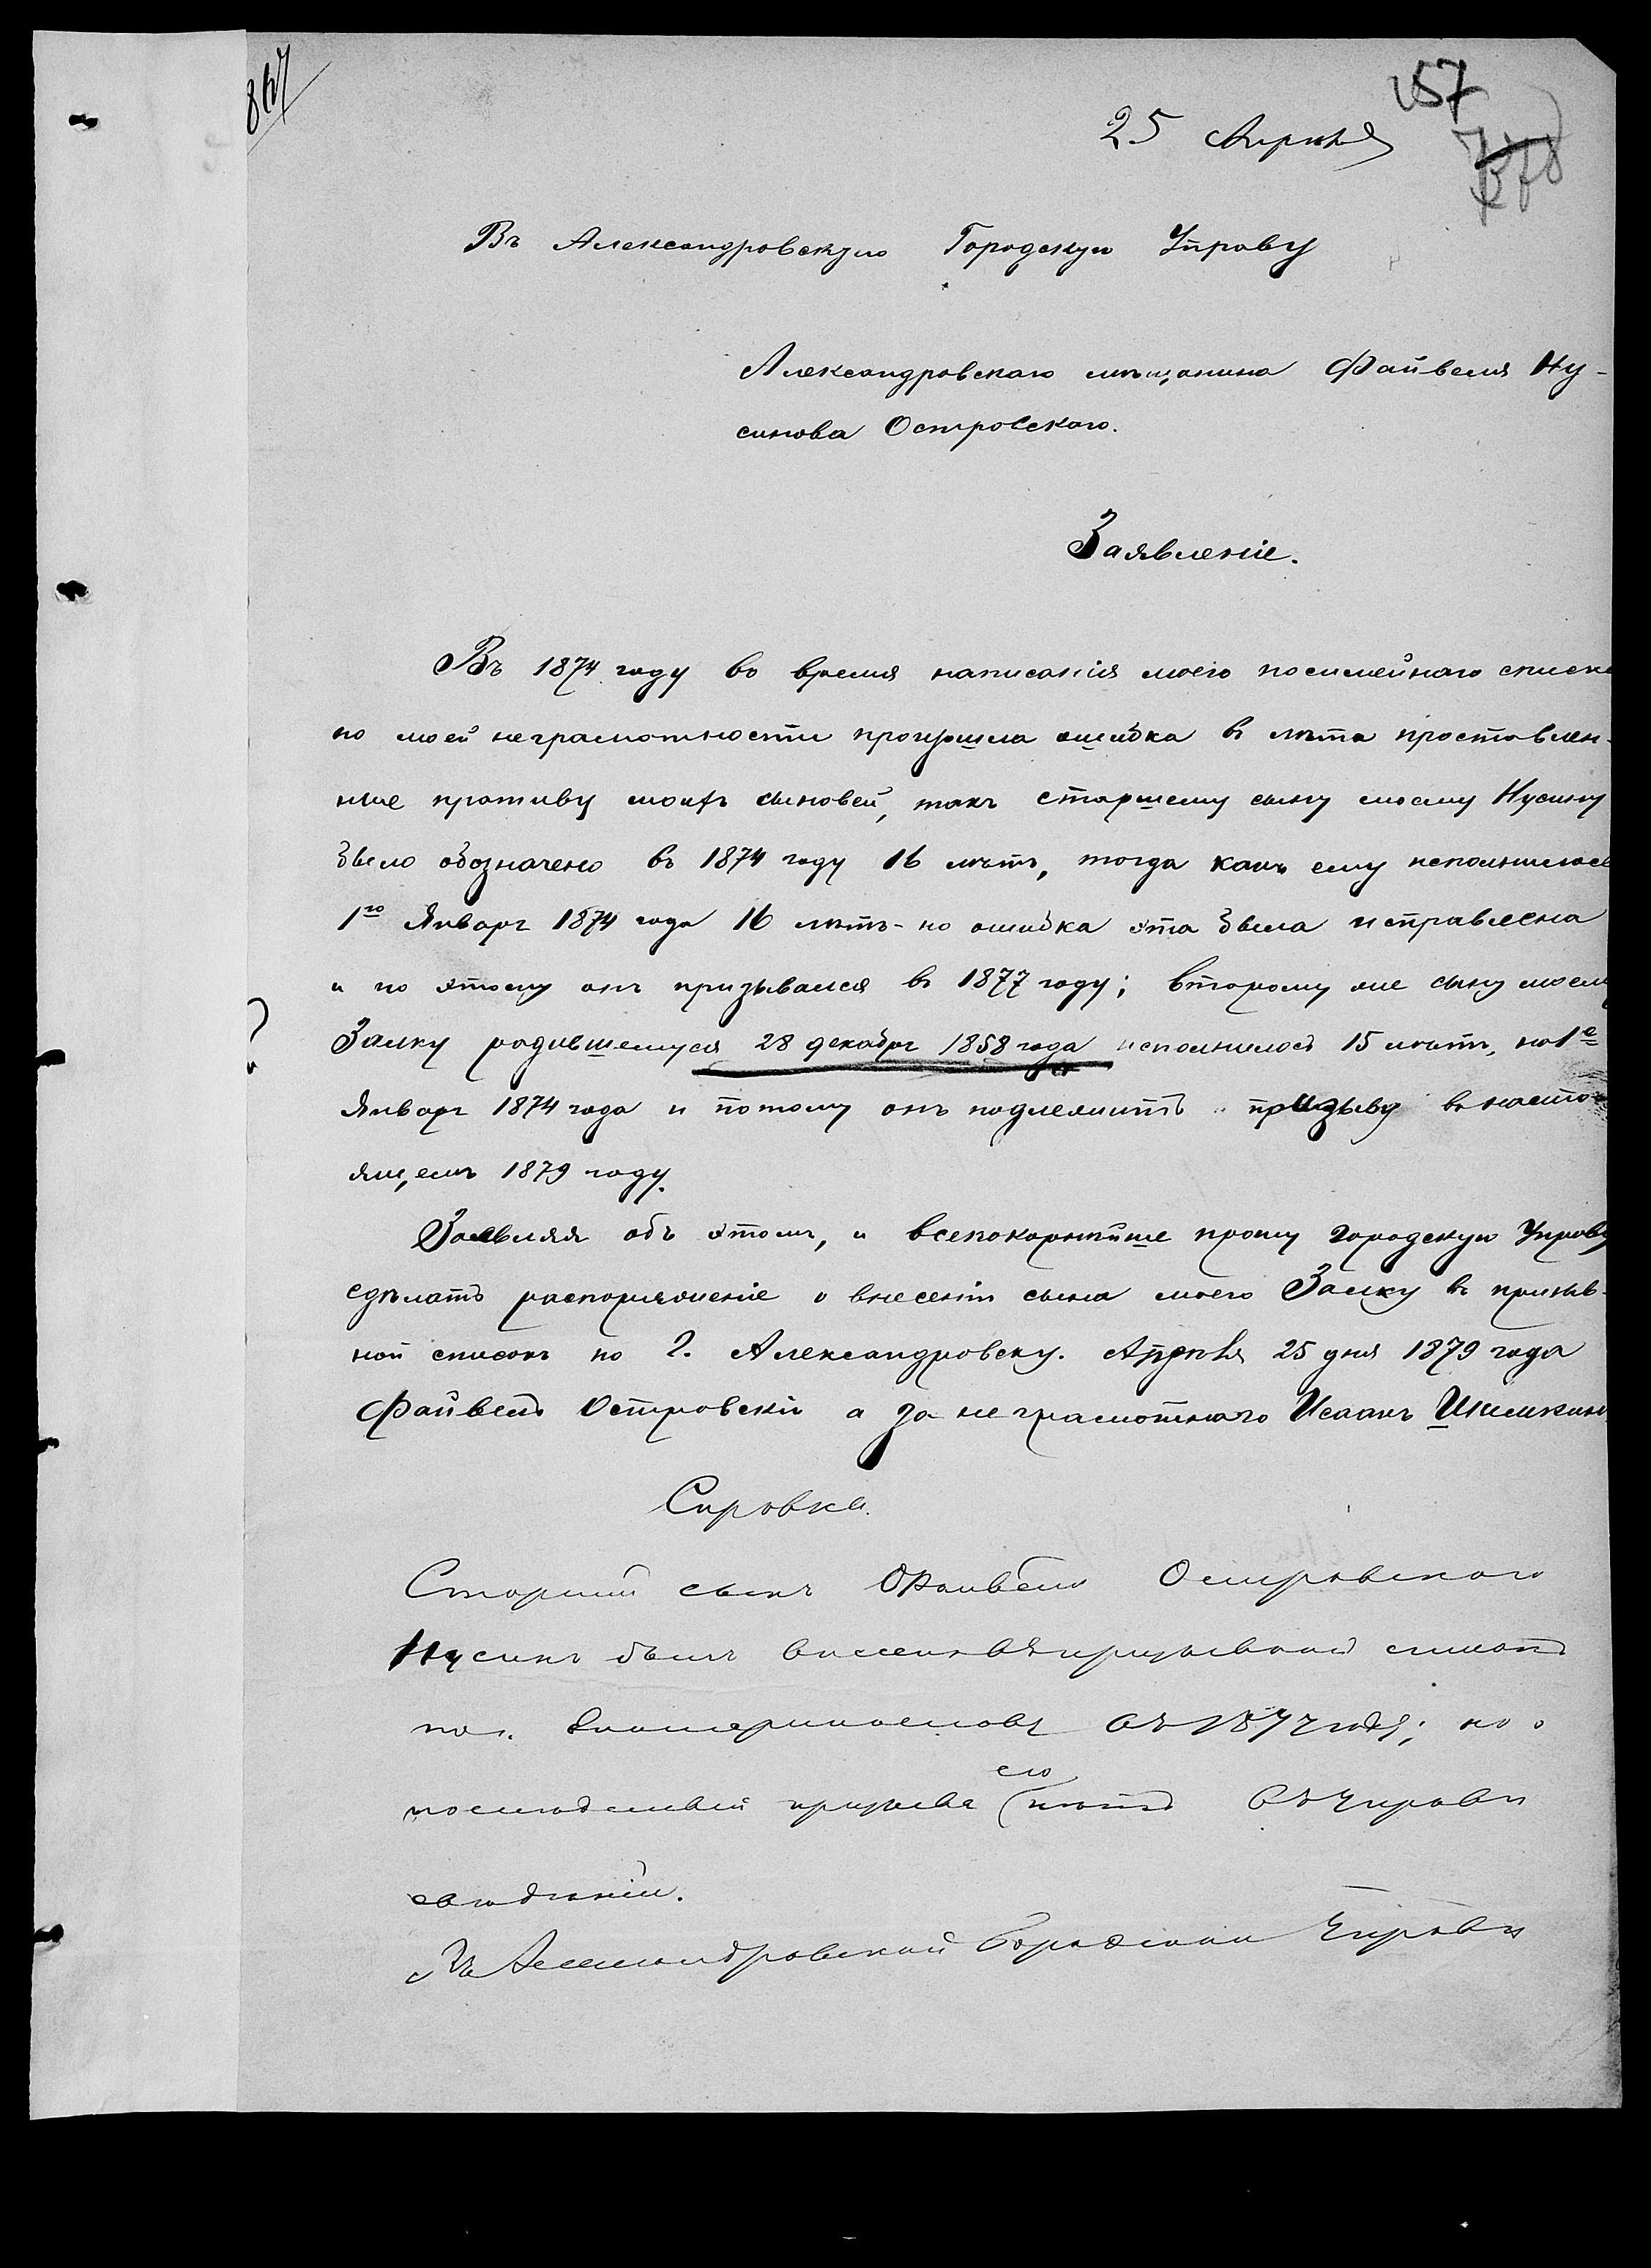 867
157
25 Апрѣля
Въ Александровскую Городскую Управу
Александровскаго мѣщанина Файвеля Ну-
синова Островскаго.
Заявленіе.
Въ 1874 году во время написанія моего посимейнаго списка
по моей неграмотности произошла ошибка в лѣта проставлен-
ные противу моихъ сыновей, такъ старшему сыну моему Нусину
было обозначено въ 1874 году 16 лѣтъ, тогда какъ ему исполнилось
1го Январг 1874 года 16 лѣтъ - но ошибка эта была исправлена
и по этому онъ призывался въ 1877 году; второму же сыну моему
Залку родившемуся 28 декабрг 1858 года исполнилось 15 лѣтъ, на 1е
Январг 1874 года и потому онъ подлежитъ призыву в насто-
ящемъ 1879 году.
Заявляя объ этомъ, и всепокорнѣйше прошу городскую Управу
сдѣлать распоряженіе о внесеніи сына моего Залку въ призыв-
ной списокъ по г. Александровску. Апрѣля 25 дня 1879 года
Файвель Островскій а за неграмотнаго Исаакъ Шишкин
Справка.
Старшій сынъ Файвеля Островскаго
Нусинъ былъ внесенъ въ призывной списокъ
по г. Екатеринославу въ 1877 году; но о
послѣдствіи призыва его нѣтъ въ Управѣ
свѣдѣній.
Въ Александровской Городской Управѣ